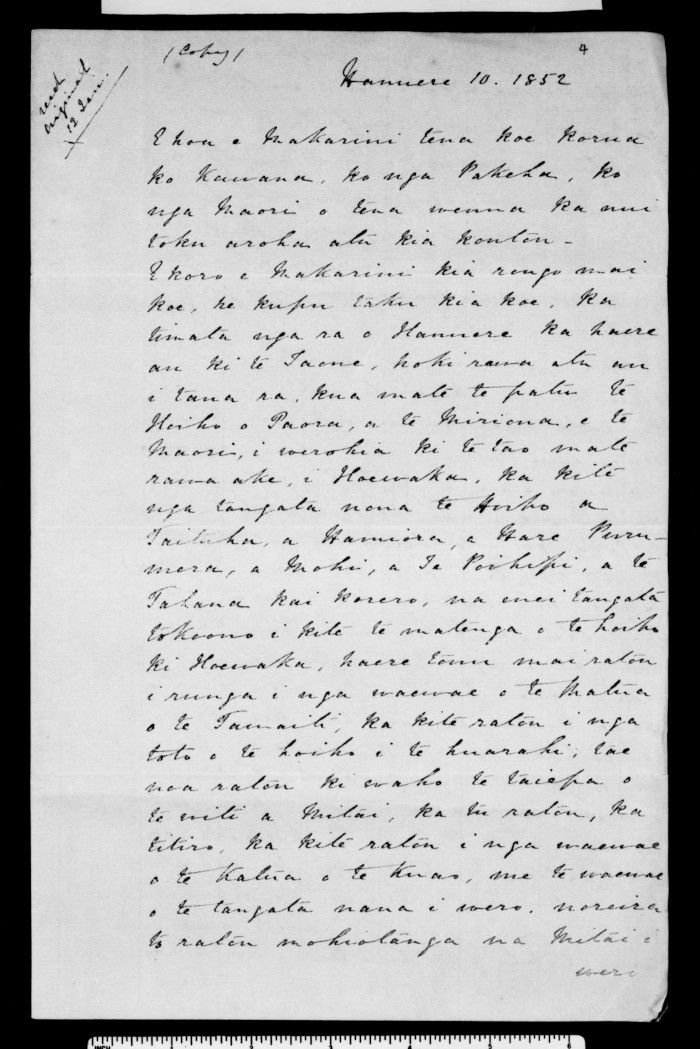 (Copy)
4
recd
original
12 Jan.
Hanuere 10. 1852
E hoa e Makarini tena koe korua
ko Kawana, ko nga Pakeha, ko
nga Maori o tena wenua ka nui
toku aroha atu kia koutou -
E koro e Makarini kia rongo mai
koe, he kupu taku kia koe, ka
timata nga ra o Hanuere ka haere
au ki te Taone, hoki rawa atu au
i taua ra, kua mate te patu te
Hoiho o Paora, a te Miriona, e te
Maori, i werohia ki te tao mate
rawa ake, i Hoewaka, ka kite
nga tangata nona te Hoiho a
Taituha, a Hamiora, a Hare Puru-
mera, a Mohi, a Te Poihipi, a te
Tahana kai korero, na enei tangata
tokoono i kite te matenga o te hoiho
ki Hoewaka, haere tonu mai ratou
i runga i nga waewae o te Matua
o te Tamaiti, ka kite ratou i nga
toto o te hoiho i te huarahi, tae
noa ratou ki waho te taiepa o
te witi a Mitai, ka tu ratou, ka
titiro, ka kite ratou i nga waewae
o te Katua o te Kuao, me te waewae
o te tangata nana i wero. noreira
to ratou mohiotanga na Mitai i
wero
INCH 1 2 3 4 5 6